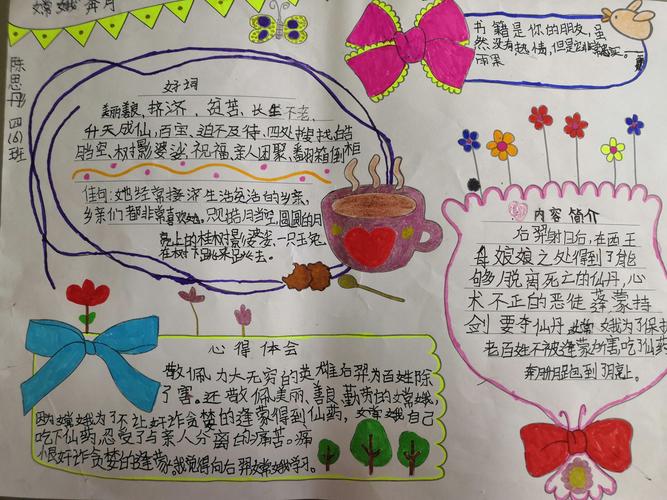 嫦娥奔月
陈思丹 四(6)班
书籍是你的朋友,虽
然没有热情,但是
好词
美丽善良、接济、贫苦、长生不老、
升天成仙、百宝、迫不及待、四处搜找、皓
当空、树影婆娑、祝福、亲人团聚、翻箱倒柜
佳句:她经常接济生活贫苦的乡亲,
乡亲们都非常喜欢她,只见皓月当空,圆圆的月
亮上的桂树影婆娑,一只玉兔
在树下跳来跳去。
内容简介
后羿射日后,在西王
母娘娘之处得到了能
够脱离死亡的仙丹,心
术不正的恶徒蓬蒙持
剑要夺仙丹,嫦娥为了保护
老百姓不被蓬蒙所害吃了仙药
奔到了月亮上。
心得体会
敬佩力大无穷的英雄后羿为百姓除
了害。还敬佩美丽、善良、勤劳的嫦娥,
因为嫦娥为了不让奸诈贪婪的逢蒙得到仙药,嫦娥自己
吃下仙药,忍受了与亲人分离的痛苦。痛
恨奸诈贪婪的逢蒙。我觉得向后羿嫦娥学习。